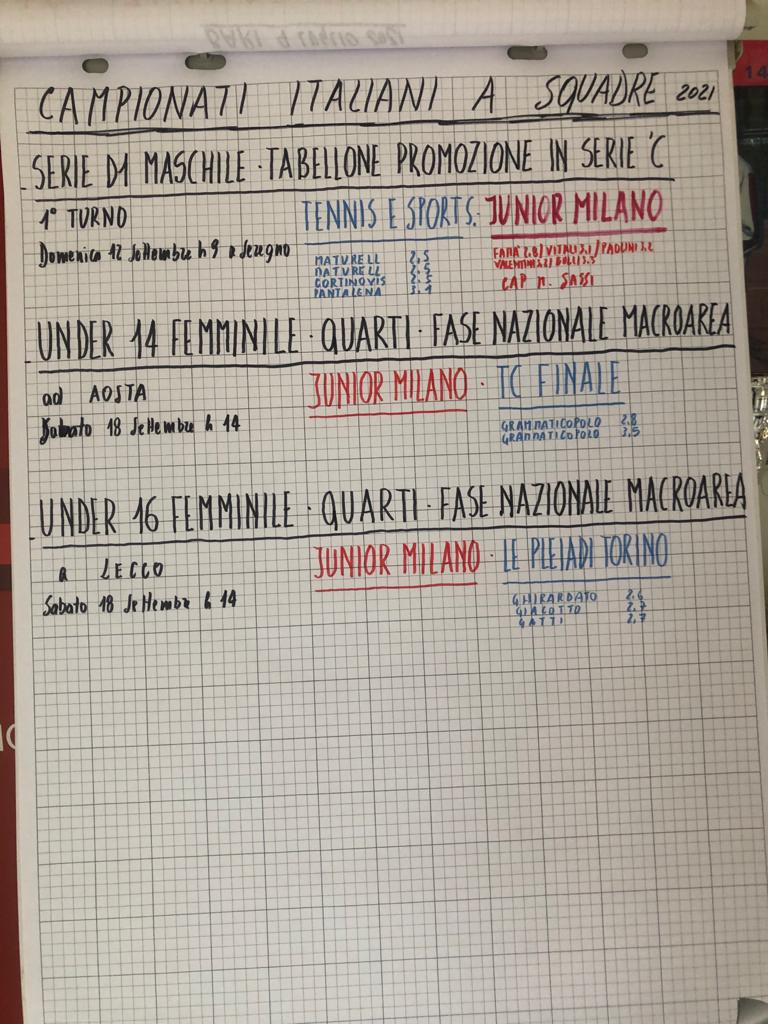 CAMPIONATI ITALIANI A SQUADRE 2021
SERIE D1 MASCHILE · TABELLONE PROMOZIONE IN SERIE 'C
1° TURNO TENNIS E SPORTS · JUNIOR MILANO
Domenica 12 Settembre h 9 a Seregno
MATURELL 2,5
NATURELL 2,5
CORTINOVIS 2,5
PANTALENA 3.1
FARA 2.8/VITALI 3.1/PADUNI 3.2
VALENTINI 3.2/
CAP n. SASSI
UNDER 14 FEMMINILE · QUARTI · FASE NAZIONALE MACROAREA
ad AOSTA JUNIOR MILANO · TC FINALE
Sabato 18 Settembre h 14
GRAMMATICOPOLO 2.8
GRAMMATICOPOLO 3.5
UNDER 16 FEMMINILE · QUARTI · FASE NAZIONALE MACROAREA
a LECCO JUNIOR MILANO · LE PLEIADI TORINO
Sabato 18 Settembre h 14
GHIRARDATO 2.6
GIACOTTO 2.7
GATTI 2,7
14